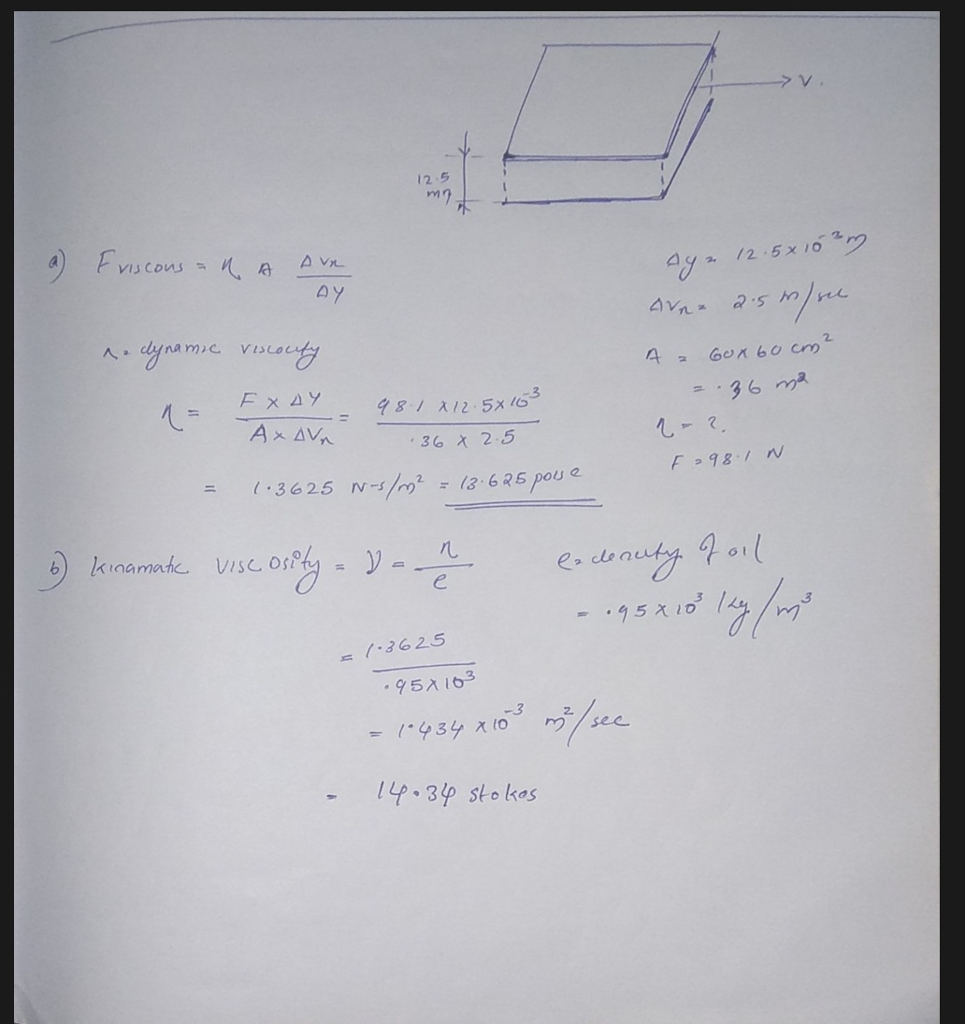 V.
12.5
mm
a) F viscous = η A ΔVx / ΔY
Δy = 12.5 x 10⁻³ m
ΔVx = 2.5 m/sec
η = dynamic viscocity
A = 60 x 60 cm²
= .36 m²
η = F x ΔY / A x ΔVx = 98.1 x 12.5 x 10⁻³ / .36 x 2.5
η = ?
F = 98.1 N
= 1.3625 N-s/m² = 13.625 poise
b) kinamatic viscosity = ν = η / e
e = density of oil
= .95 x 10³ kg/m³
= 1.3625 / .95 x 10³
= 1.434 x 10⁻³ m²/sec
= 14.34 stokes